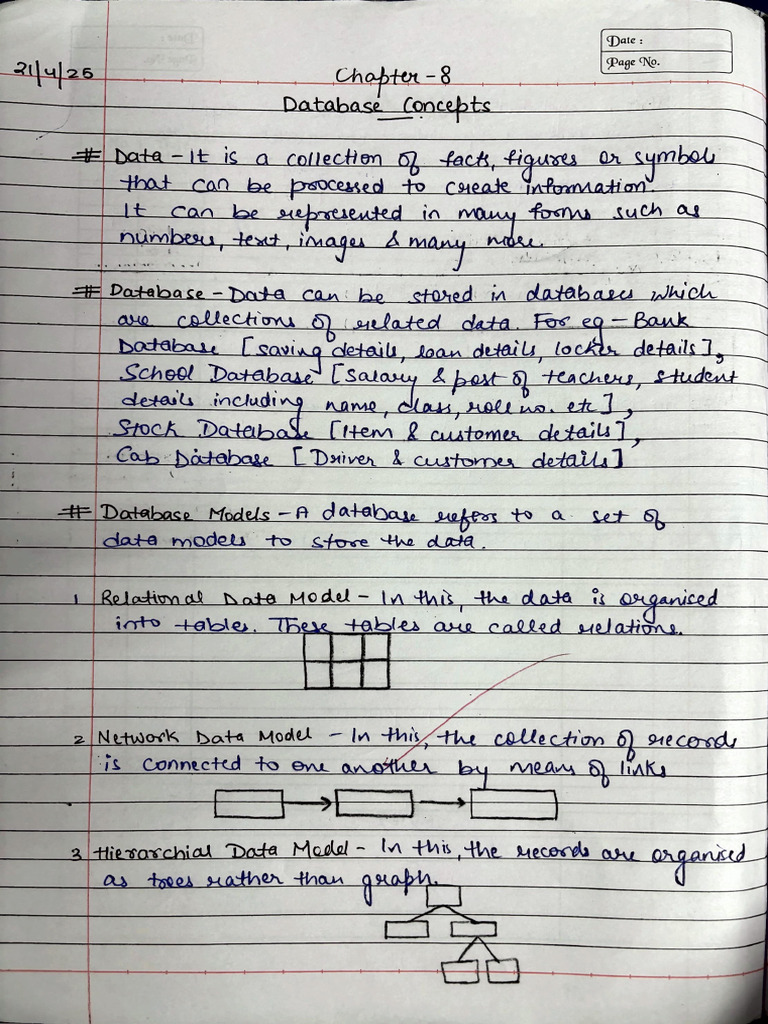 Date :
Page No.
21/4/25
Chapter - 8
Database Concepts
# Data - It is a collection of facts, figures or symbols
that can be processed to create information.
It can be represented in many forms such as
numbers, text, images & many more.
# Database - Data can be stored in databases which
are collections of related data. For eg - Bank
Database [saving details, loan details, locker details],
School Database [Salary & post of teachers, student
details including name, class, roll no. etc],
Stock Database [Item & customer details],
Cab Database [Driver & customer details]
# Database Models - A database refers to a set of
data models to store the data.
1 Relational Data Model - In this, the data is organised
into tables. These tables are called relations.
2 Network Data Model - In this, the collection of records
is connected to one another by means of links
3 Hierarchial Data Model - In this, the records are organised
as trees rather than graph.